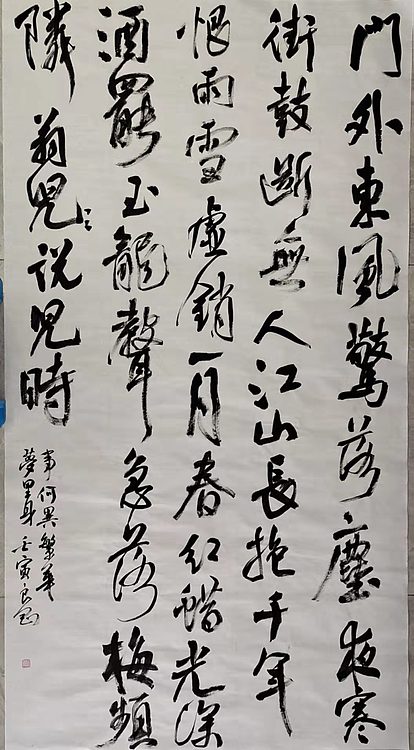 門外東風驚落塵夜寒
街鼓斷無人江山長抱千年
恨雨雪虛銷一月春紅蜡光深
酒罷玉龍聲急落梅頻
隣翁兒說兒時
事何異繁華
夢里身壬寅良